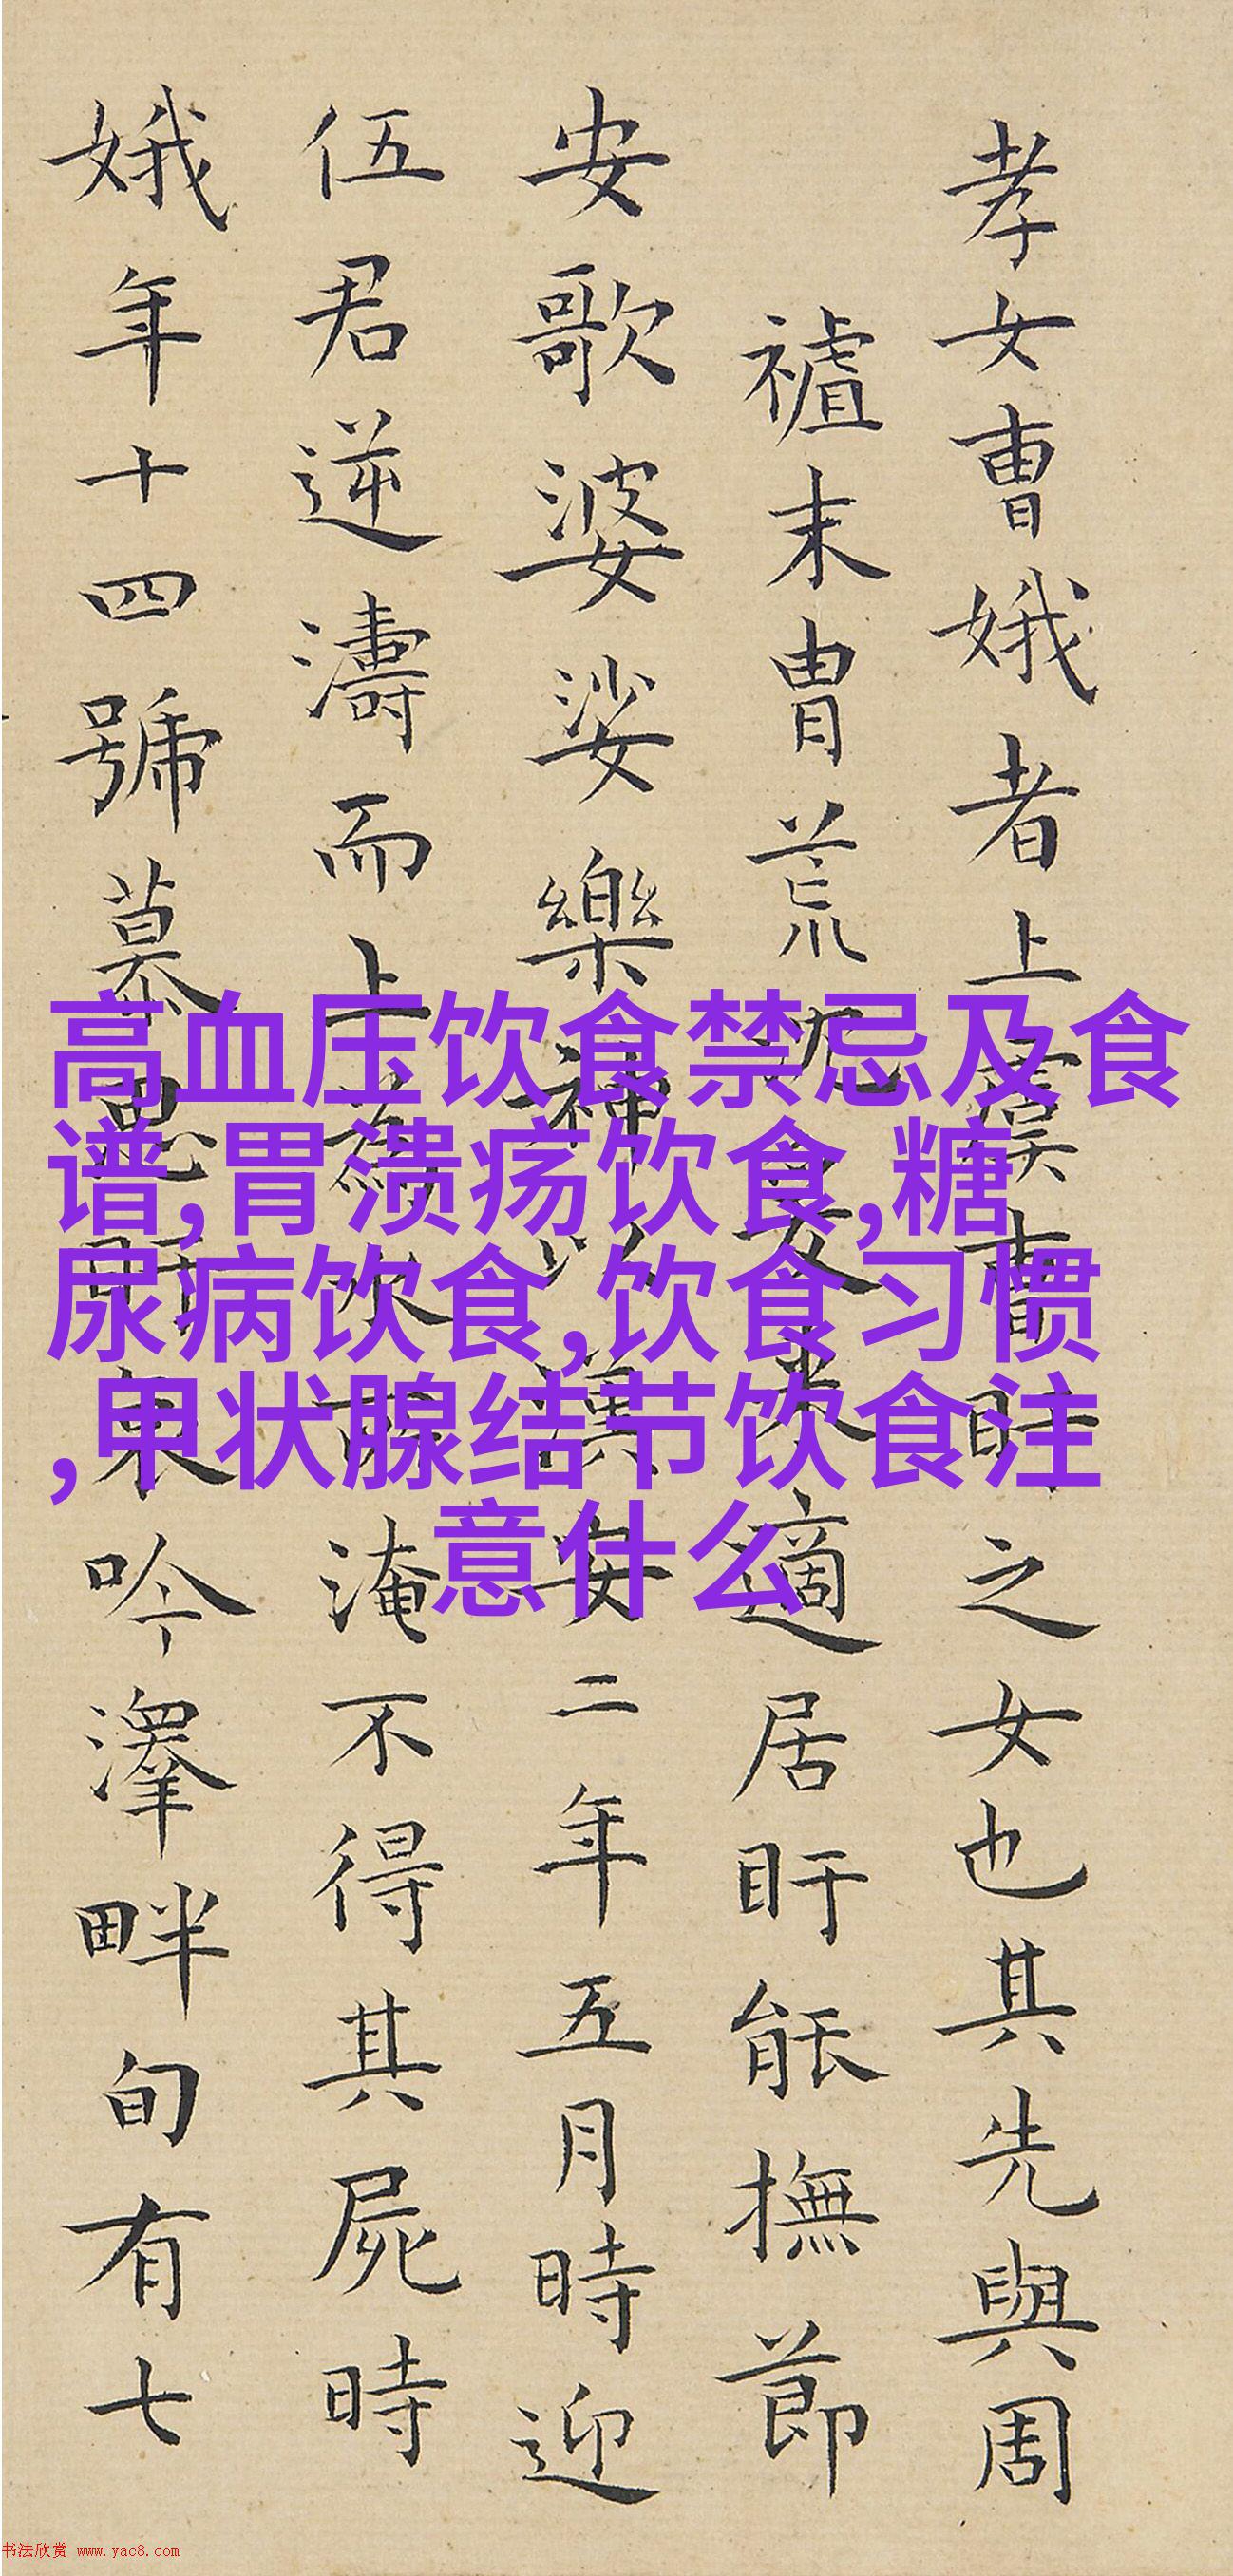 孝女曹娥者上虞曹盱之女也其先與周
禋末胄荒沉爰来適居盱能撫節
安歌婆娑樂神以漢安二年五月時迎
伍君逆濤而上為水所淹不得其屍時
娥年十四號慕思盱哀吟澤畔旬有七
高血压饮食禁忌及食
谱,胃溃疡饮食,糖
尿病饮食,饮食习惯
,甲状腺结节饮食注
意什么
书法欣赏 www.yac8.com